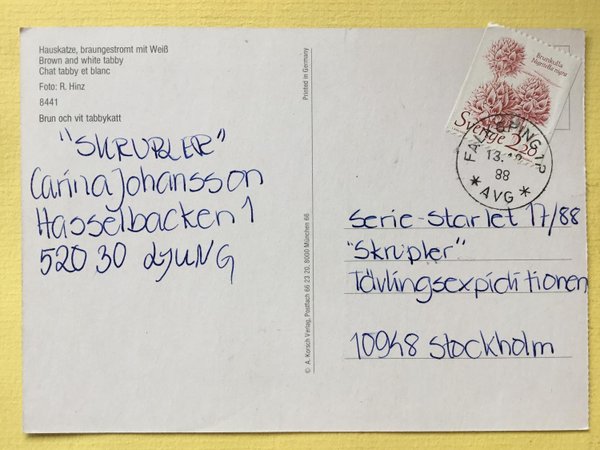 Hauskatze, braungestromt mit Weiß
Brown and white tabby
Chat tabby et blanc
Foto: R. Hinz
8441
Brun och vit tabbykatt
"SKRUPLER"
Carina Johansson
Hasselbacken 1
520 30 LJUNG
Printed in Germany
© A. Korsch Verlag, Postfach 66 23 20, 8000 München 66
Brunkulla
Nigritella nigra
Sverige 2.20
FALKÖPING 1P
13.
88
* AVG *
Serie-Starlet 17/88
"Skrupler"
Tävlingsexpiditionen
10948 Stockholm